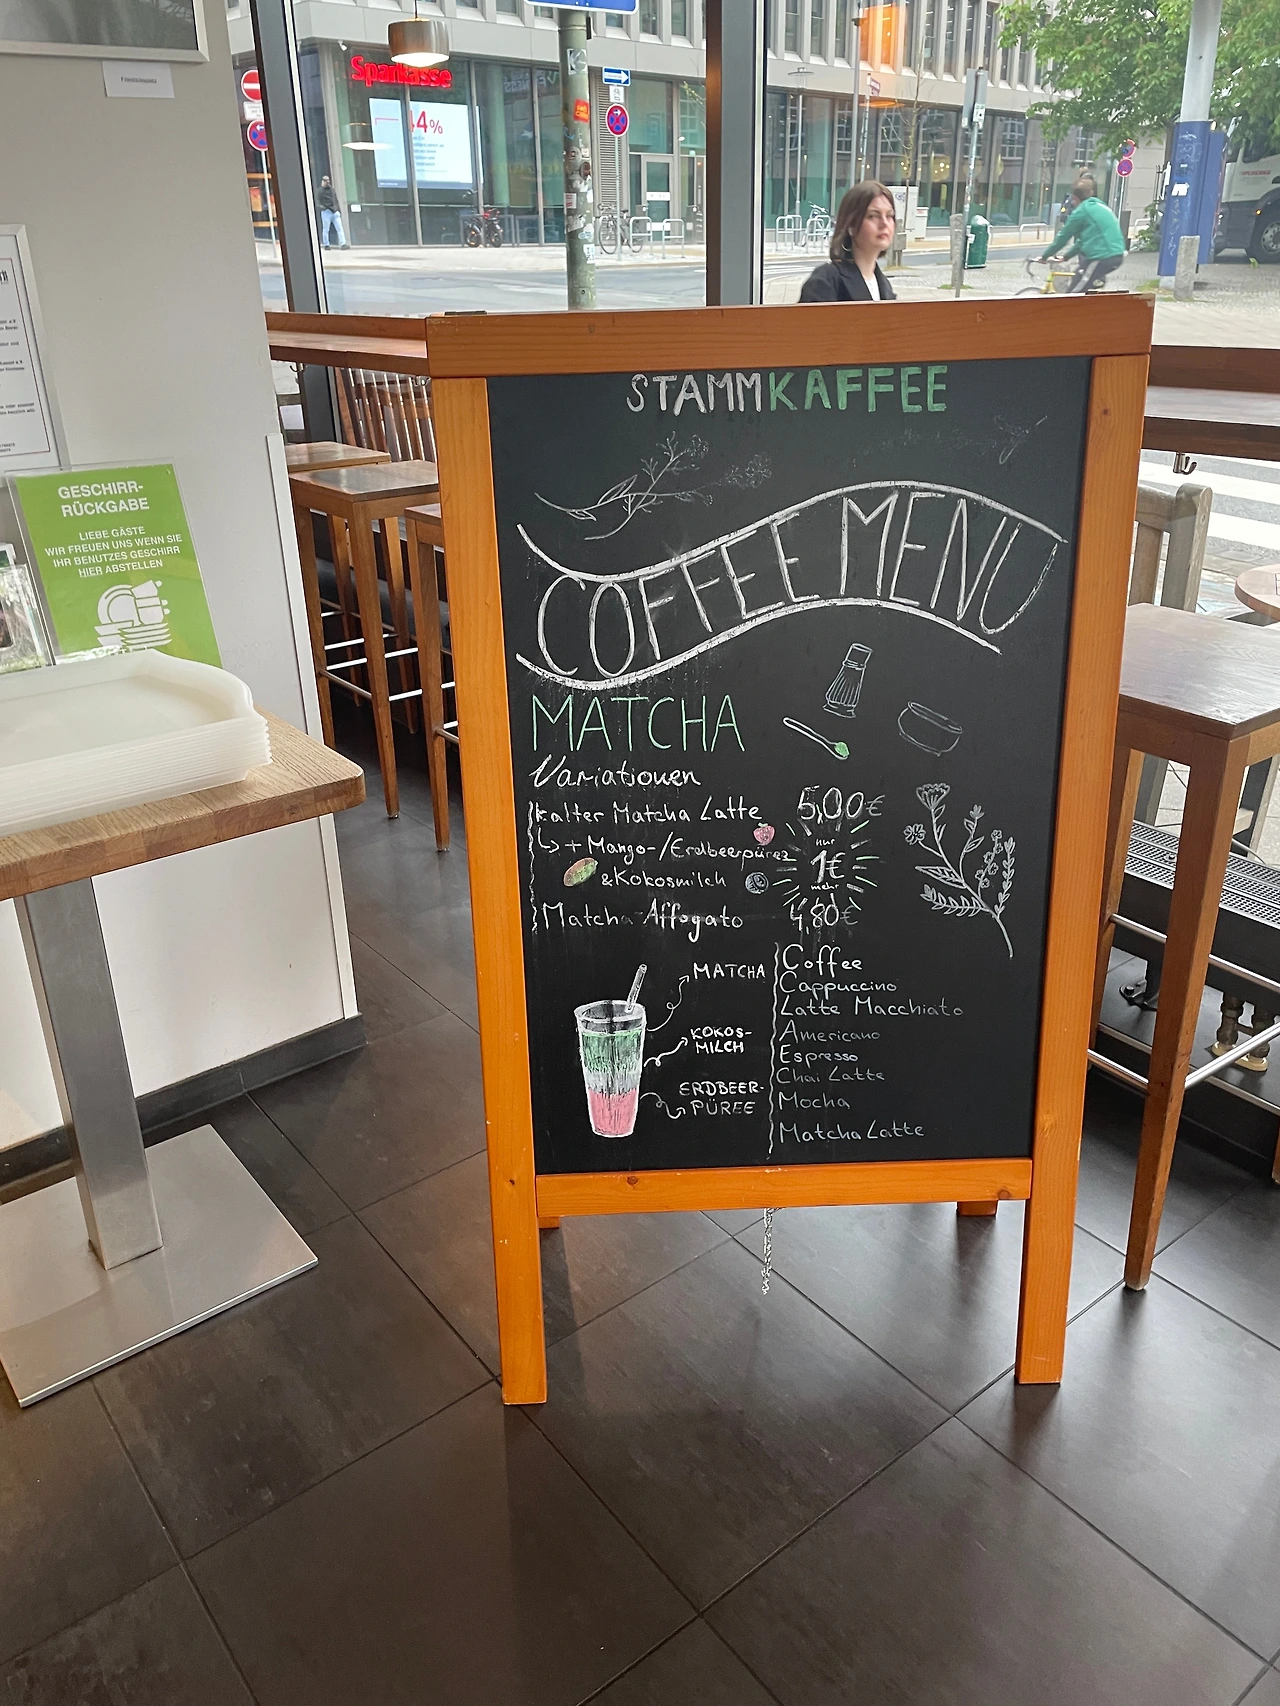 Sparkasse
4%
GESCHIRR-
RÜCKGABE
LIEBE GÄSTE
WIR FREUEN UNS WENN SIE
IHR BENUTZES GESCHIRR
HIER ABSTELLEN
STAMMKAFFEE
COFFEE MENU
MATCHA
Variationen
kalter Matcha Latte 5,00€
+ Mango-/Erdbeerpüree nur
& Kokosmilch 1€
mehr
Matcha Affogato 4,80€
MATCHA
KOKOS-
MILCH
ERDBEER-
PÜREE
Coffee
Cappuccino
Latte Macchiato
Americano
Espresso
Chai Latte
Mocha
Matcha Latte